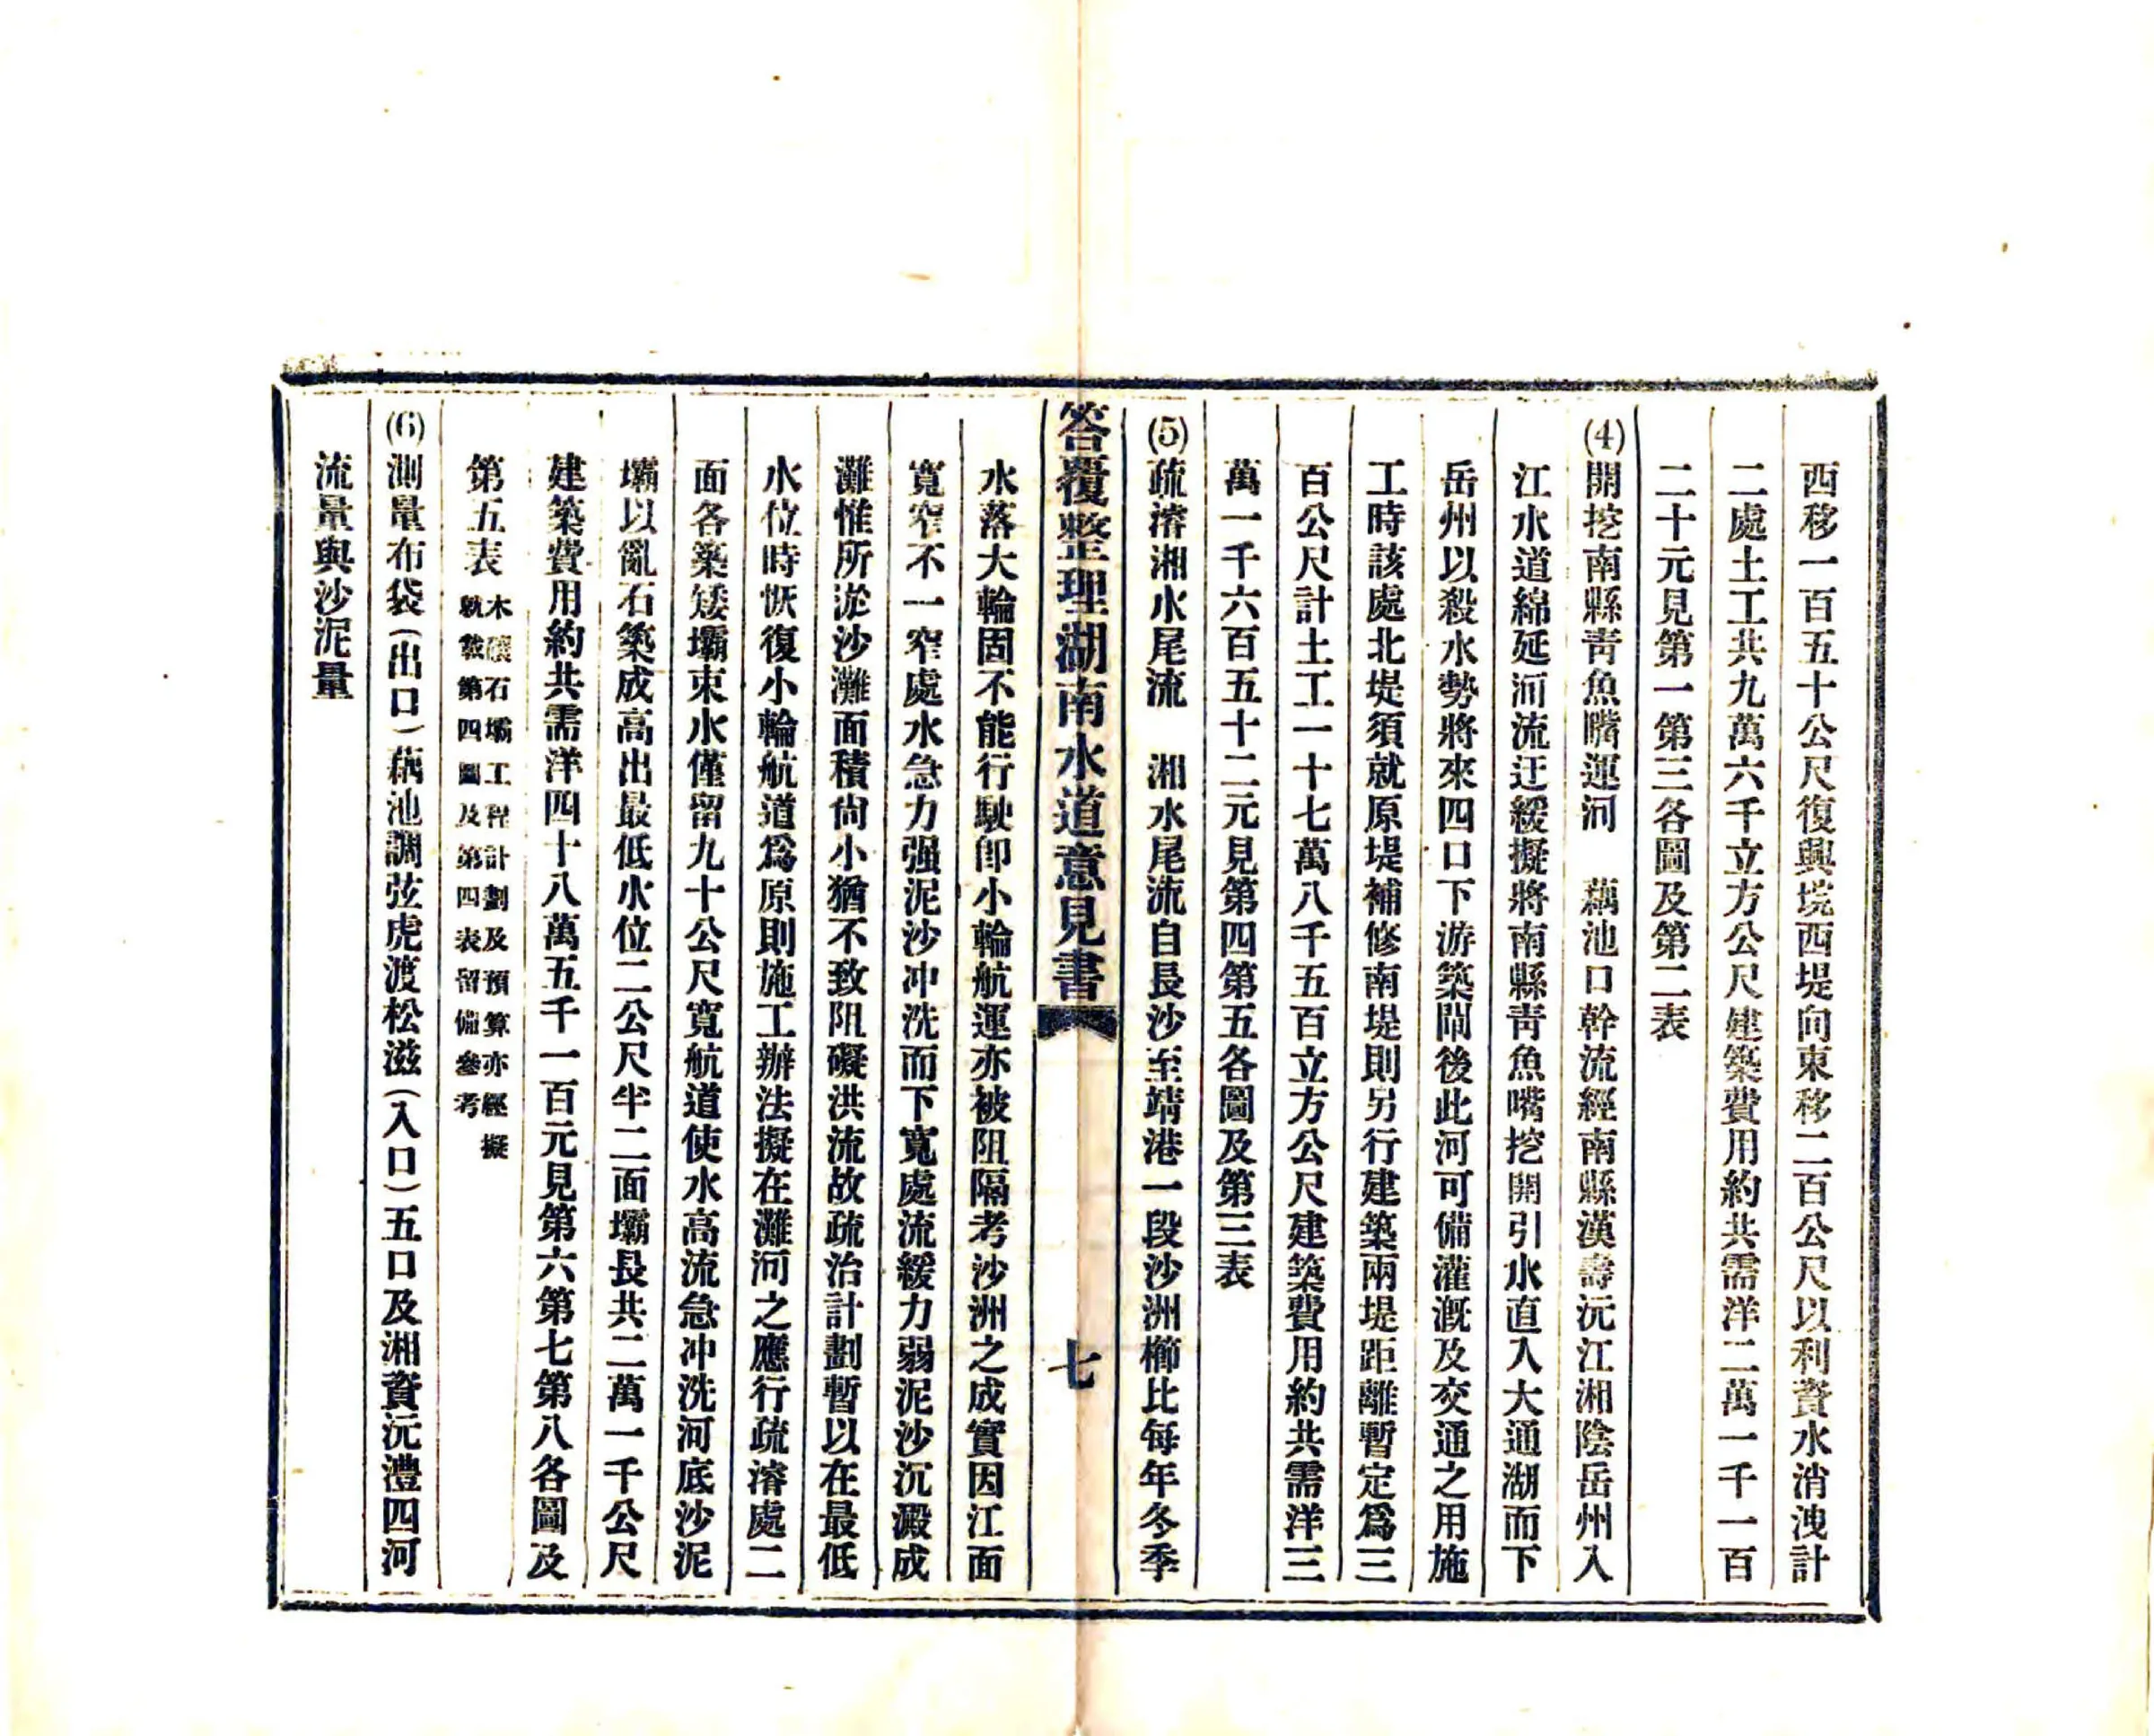 西移一百五十公尺復興垸西堤向東移二百公尺以利資水消洩計
二處土工共九萬六千立方公尺建築費用約共需洋二萬一千一百
二十元見第一第三各圖及第二表
(4)開挖南縣靑魚嘴運河　藕池口幹流經南縣漢壽沅江湘陰岳州入
江水道綿延河流迂緩擬將南縣靑魚嘴挖開引水直入大通湖而下
岳州以殺水勢將來四口下游築閘後此河可備灌溉及交通之用施
工時該處北堤須就原堤補修南堤則另行建築兩堤距離暫定爲三
百公尺計土工一十七萬八千五百立方公尺建築費用約共需洋三
萬一千六百五十二元見第四第五各圖及第三表
(5)疏濬湘水尾流　湘水尾流自長沙至靖港一段沙洲櫛比每年冬季
答覆整理湖南水道意見書
七
水落大輪固不能行駛卽小輪航運亦被阻隔考沙洲之成實因江面
寬窄不一窄處水急力强泥沙冲洗而下寬處流緩力弱泥沙沉澱成
灘惟所淤沙灘面積尙小猶不致阻礙洪流故疏治計劃暫以在最低
水位時恢復小輪航道爲原則施工辦法擬在灘河之應行疏濬處二
面各築矮壩束水僅留九十公尺寬航道使水高流急冲洗河底沙泥
壩以亂石築成高出最低水位二公尺半二面壩長共二萬一千公尺
建築費用約共需洋四十八萬五千一百元見第六第七第八各圖及
第五表
木磯石壩工程計劃及預算亦經擬
就載第四圖及第四表留備參考
(6)測量布袋(出口)藕池調弦虎渡松滋(入口)五口及湘資沅澧四河
流量與沙泥量